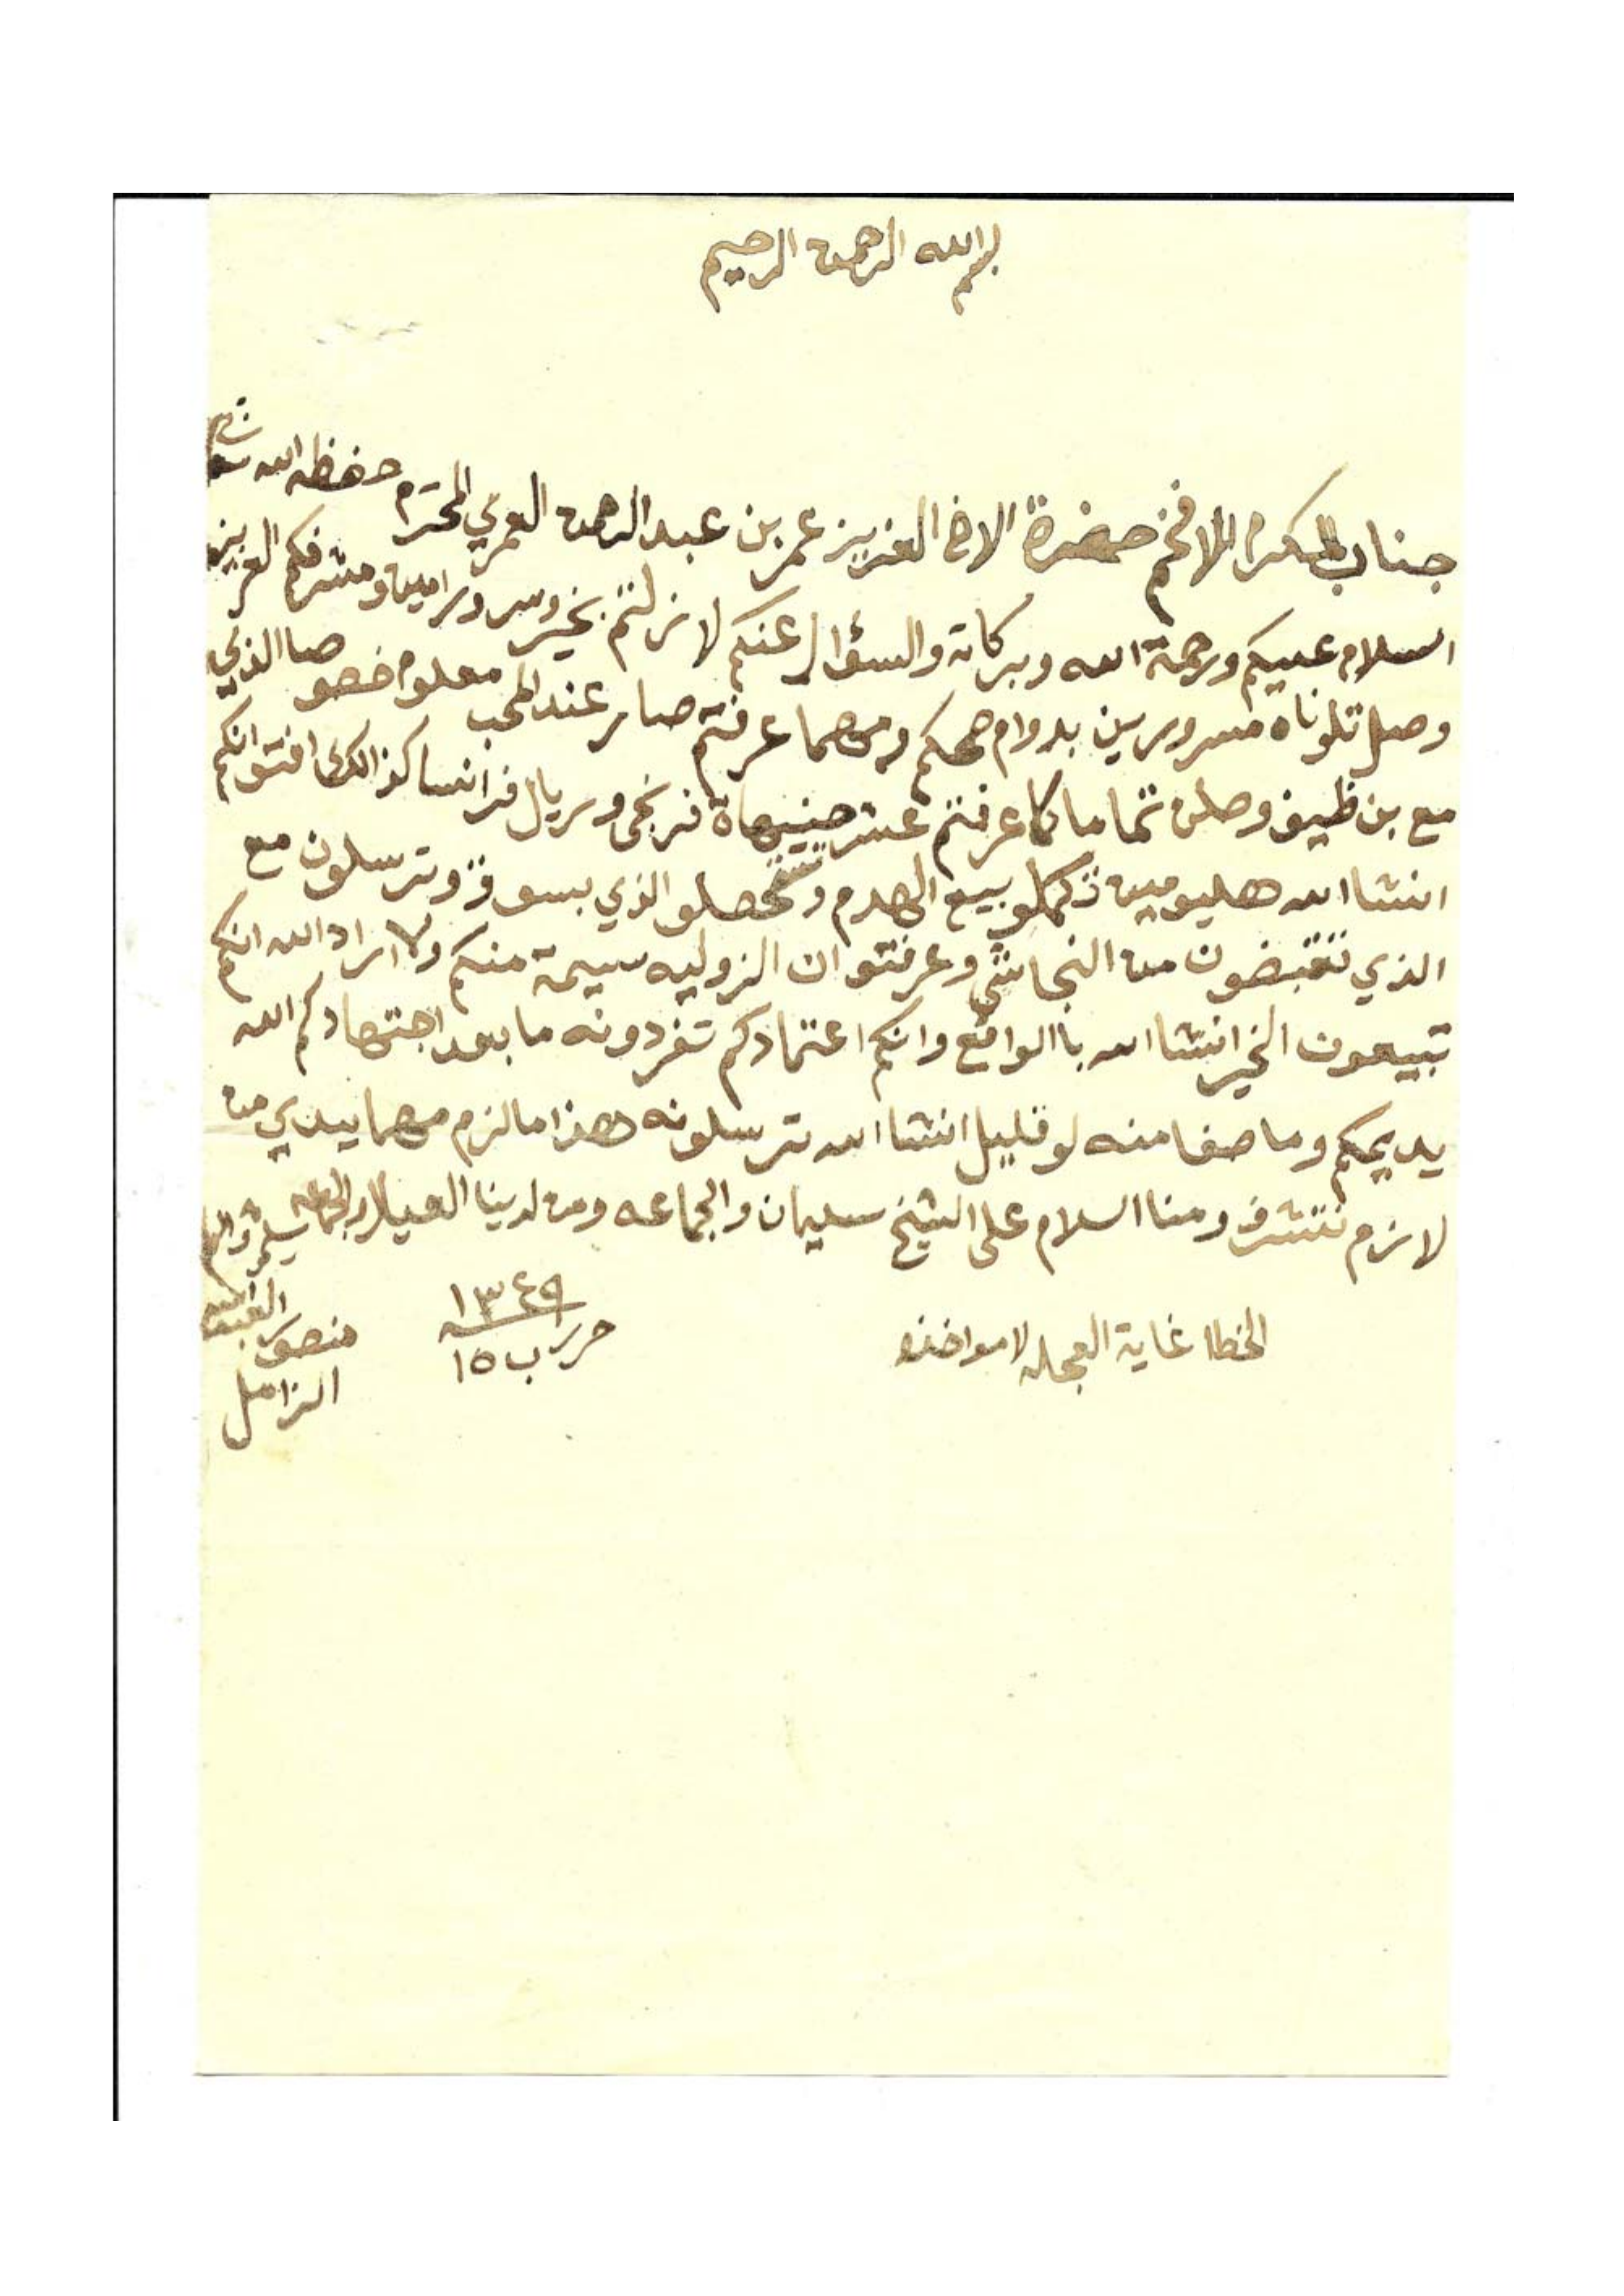 بسم الله الرحمن الرحيم
جناب المكرم الافخم حضرة الاخ العزيز عمر بن عبدالرحمن العمري المحترم حفظه الله
السلام عليكم ورحمة الله وبركاته والسؤال عنكم لا زلتم بخير وسرور امين ومشرفكم العزيز
وصل تلوناه مسرورين بدوام صحتكم ومهما عرفتم صار عند المحب معلوم خصوصا الذي
مع بن ظيف وصلن تماما كما عرفتم عشر جنيهاة فرنجي وريال فرانسا كذالك عرفتو انكم
انشا الله هليومين تكملو بيع الهدم وتحصلو الذي بسوقة وترسلون مع
الذي تقبضون من النجاشي وعرفتو ان الزوليه سيمة منكم ولا اراد الله انكم
تبيعون الخير انشا الله باالواقع وانكم اعتمادكم تفردونه ما بعد اجتهادكم الله
يديمكم وما صفا منه لو قليل انشا الله ترسلونه هذا مالزم مهما يبدي من
لازم نتشرف ومنا السلام على الشيخ سليمان والجماعه ومن لدينا العيال والجماعه يسلمون
الخطا غاية العجله لا مواخذه
١٣٤٩
حرر ب ١٥
منصور
الزامل